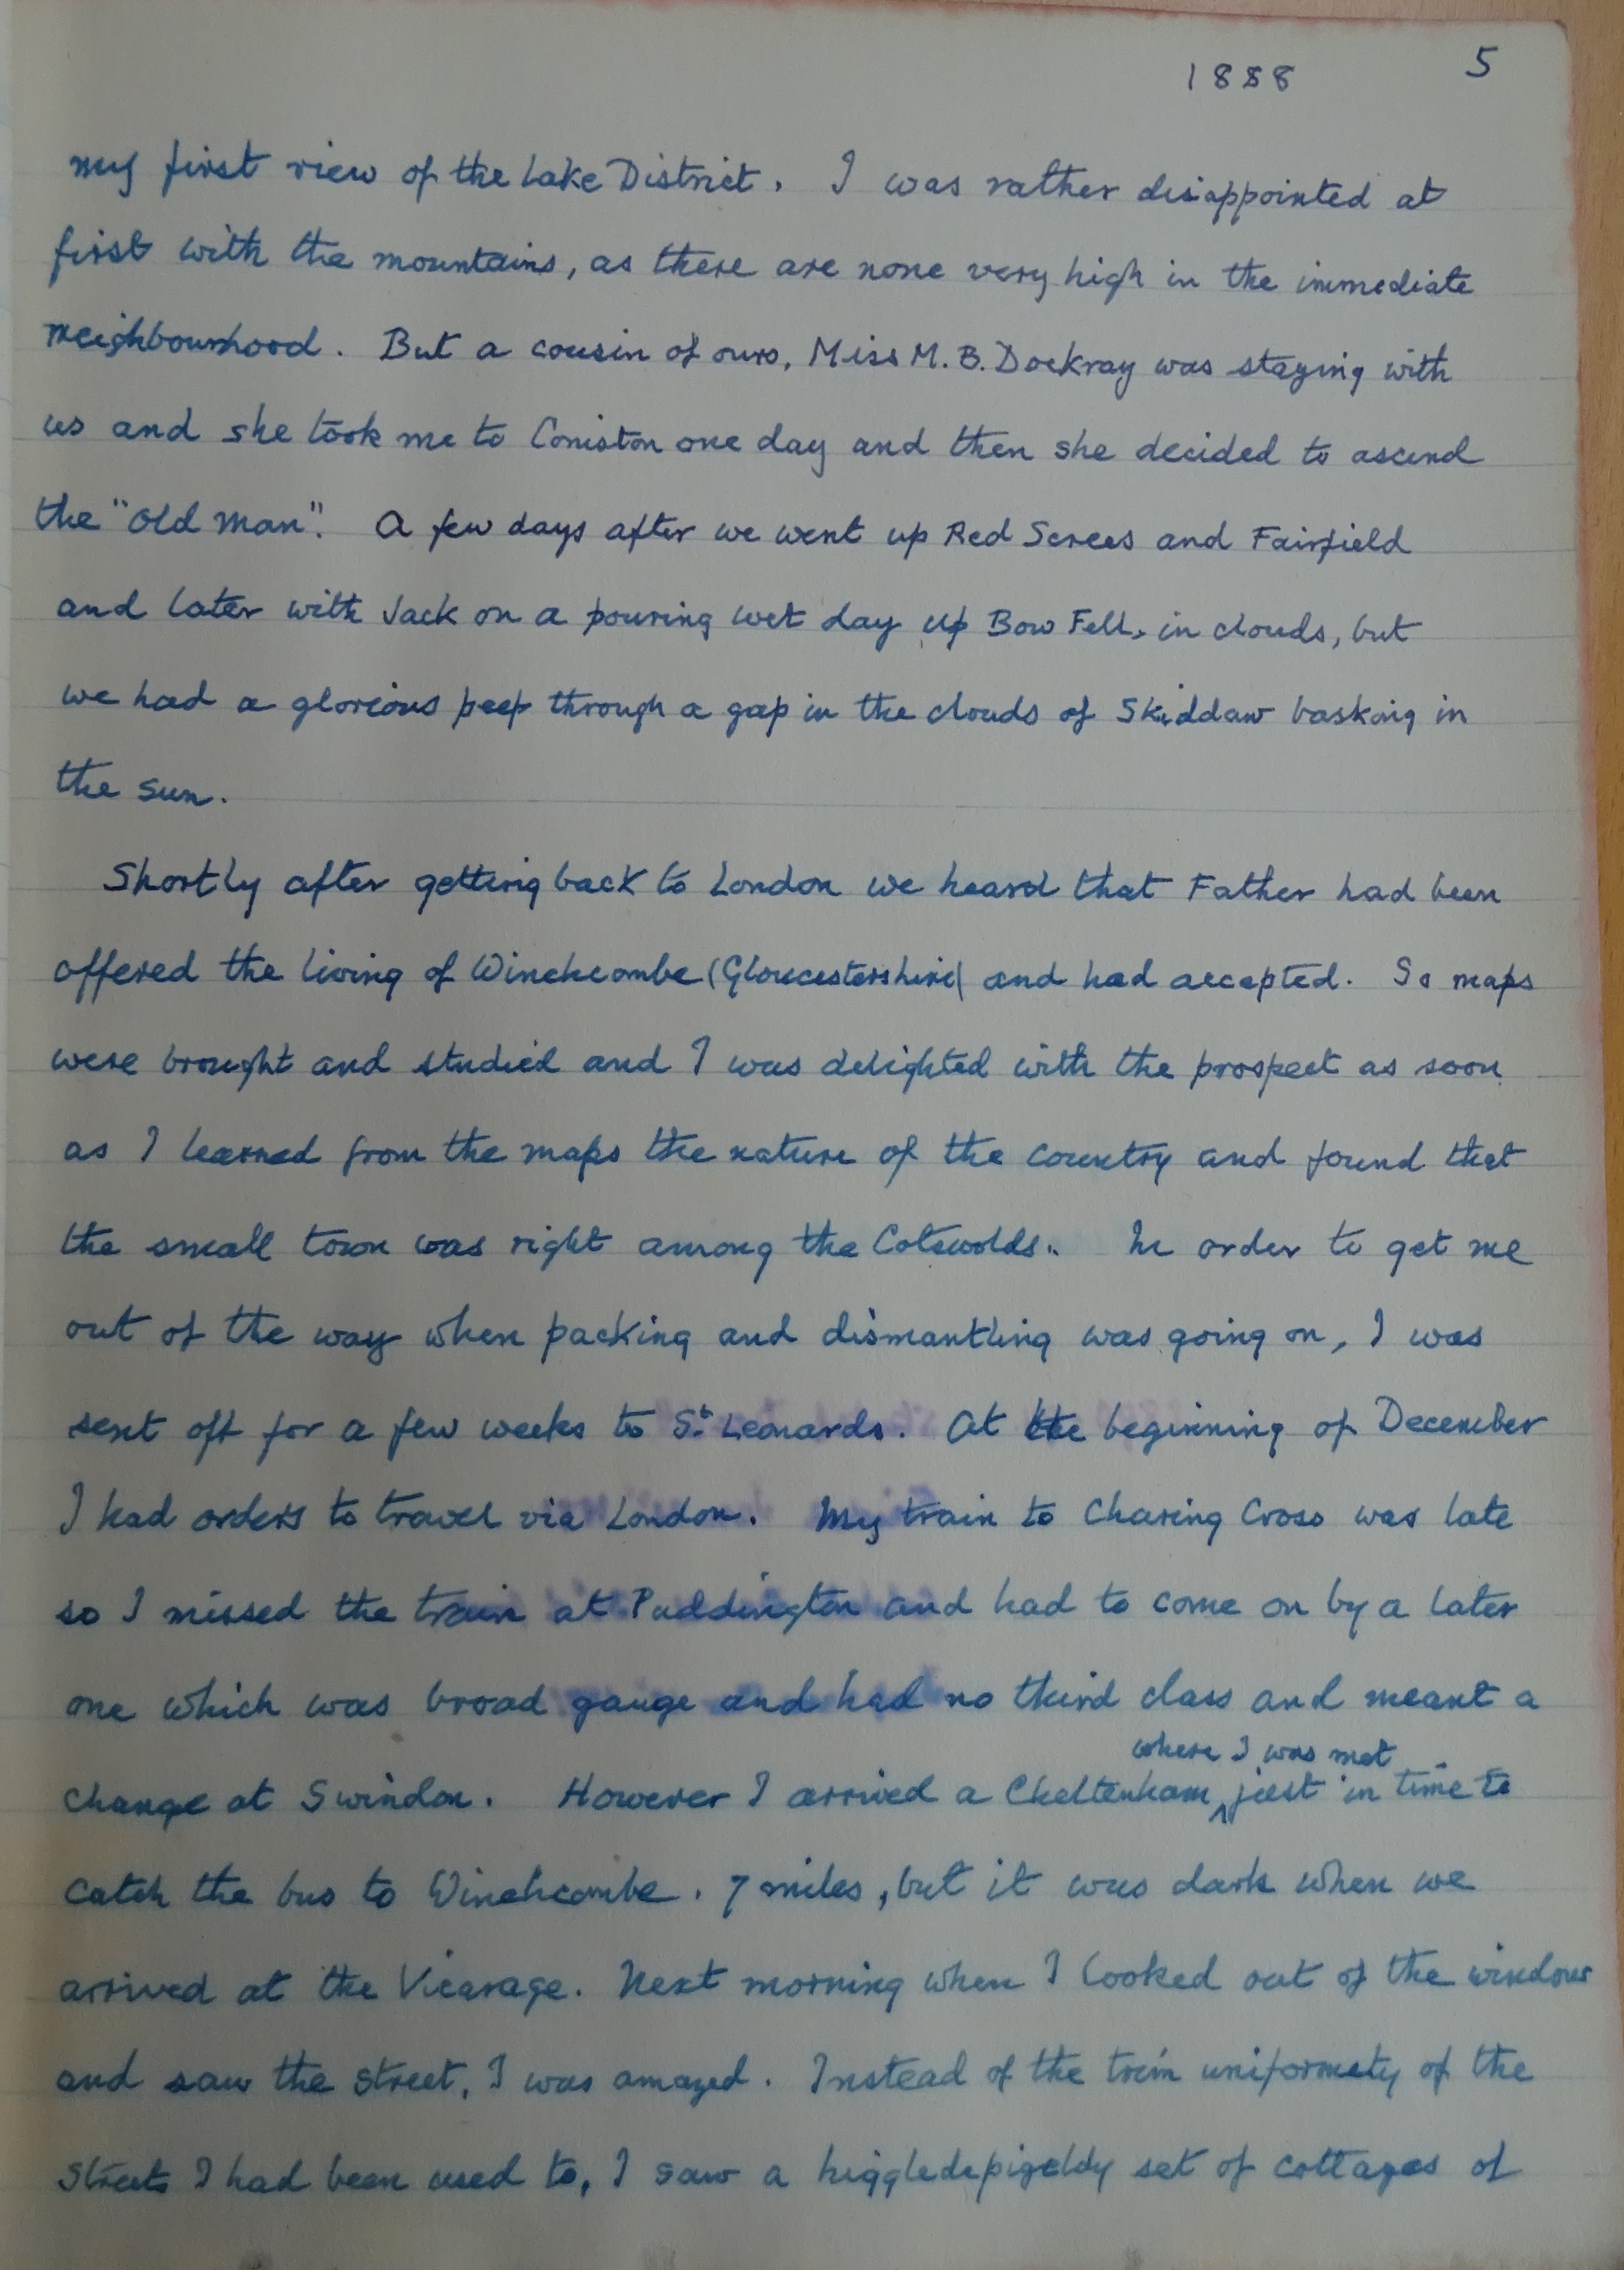 1888 5
my first view of the Lake District. I was rather disappointed at
first with the mountains, as there are none very high in the immediate
neighbourhood. But a cousin of ours, Miss M. B. Dockray was staying with
us and she took me to Coniston one day and then she decided to ascend
the "Old Man". A few days after we went up Red Screes and Fairfield
and later with Jack on a pouring wet day up Bow Fell, in clouds, but
we had a glorious peep through a gap in the clouds of Skiddaw basking in
the sun.
Shortly after getting back to London we heard that Father had been
offered the living of Winchcombe (Gloucestershire) and had accepted. So maps
were brought and studied and I was delighted with the prospect as soon
as I learned from the maps the nature of the country and found that
the small town was right among the Cotswolds. In order to get me
out of the way when packing and dismantling was going on, I was
sent off for a few weeks to St. Leonards. At the beginning of December
I had orders to travel via London. My train to Charing Cross was late
so I missed the train at Paddington and had to come on by a later
one which was broad gauge and had no third class and meant a
where I was met
change at Swindon. However I arrived a Cheltenham ^ just in time to
catch the bus to Winchcombe. 7 miles, but it was dark when we
arrived at the Vicarage. Next morning when I looked out of the window
and saw the street, I was amazed. Instead of the trim uniformity of the
streets I had been used to, I saw a higgledepigeldy set of cottages of